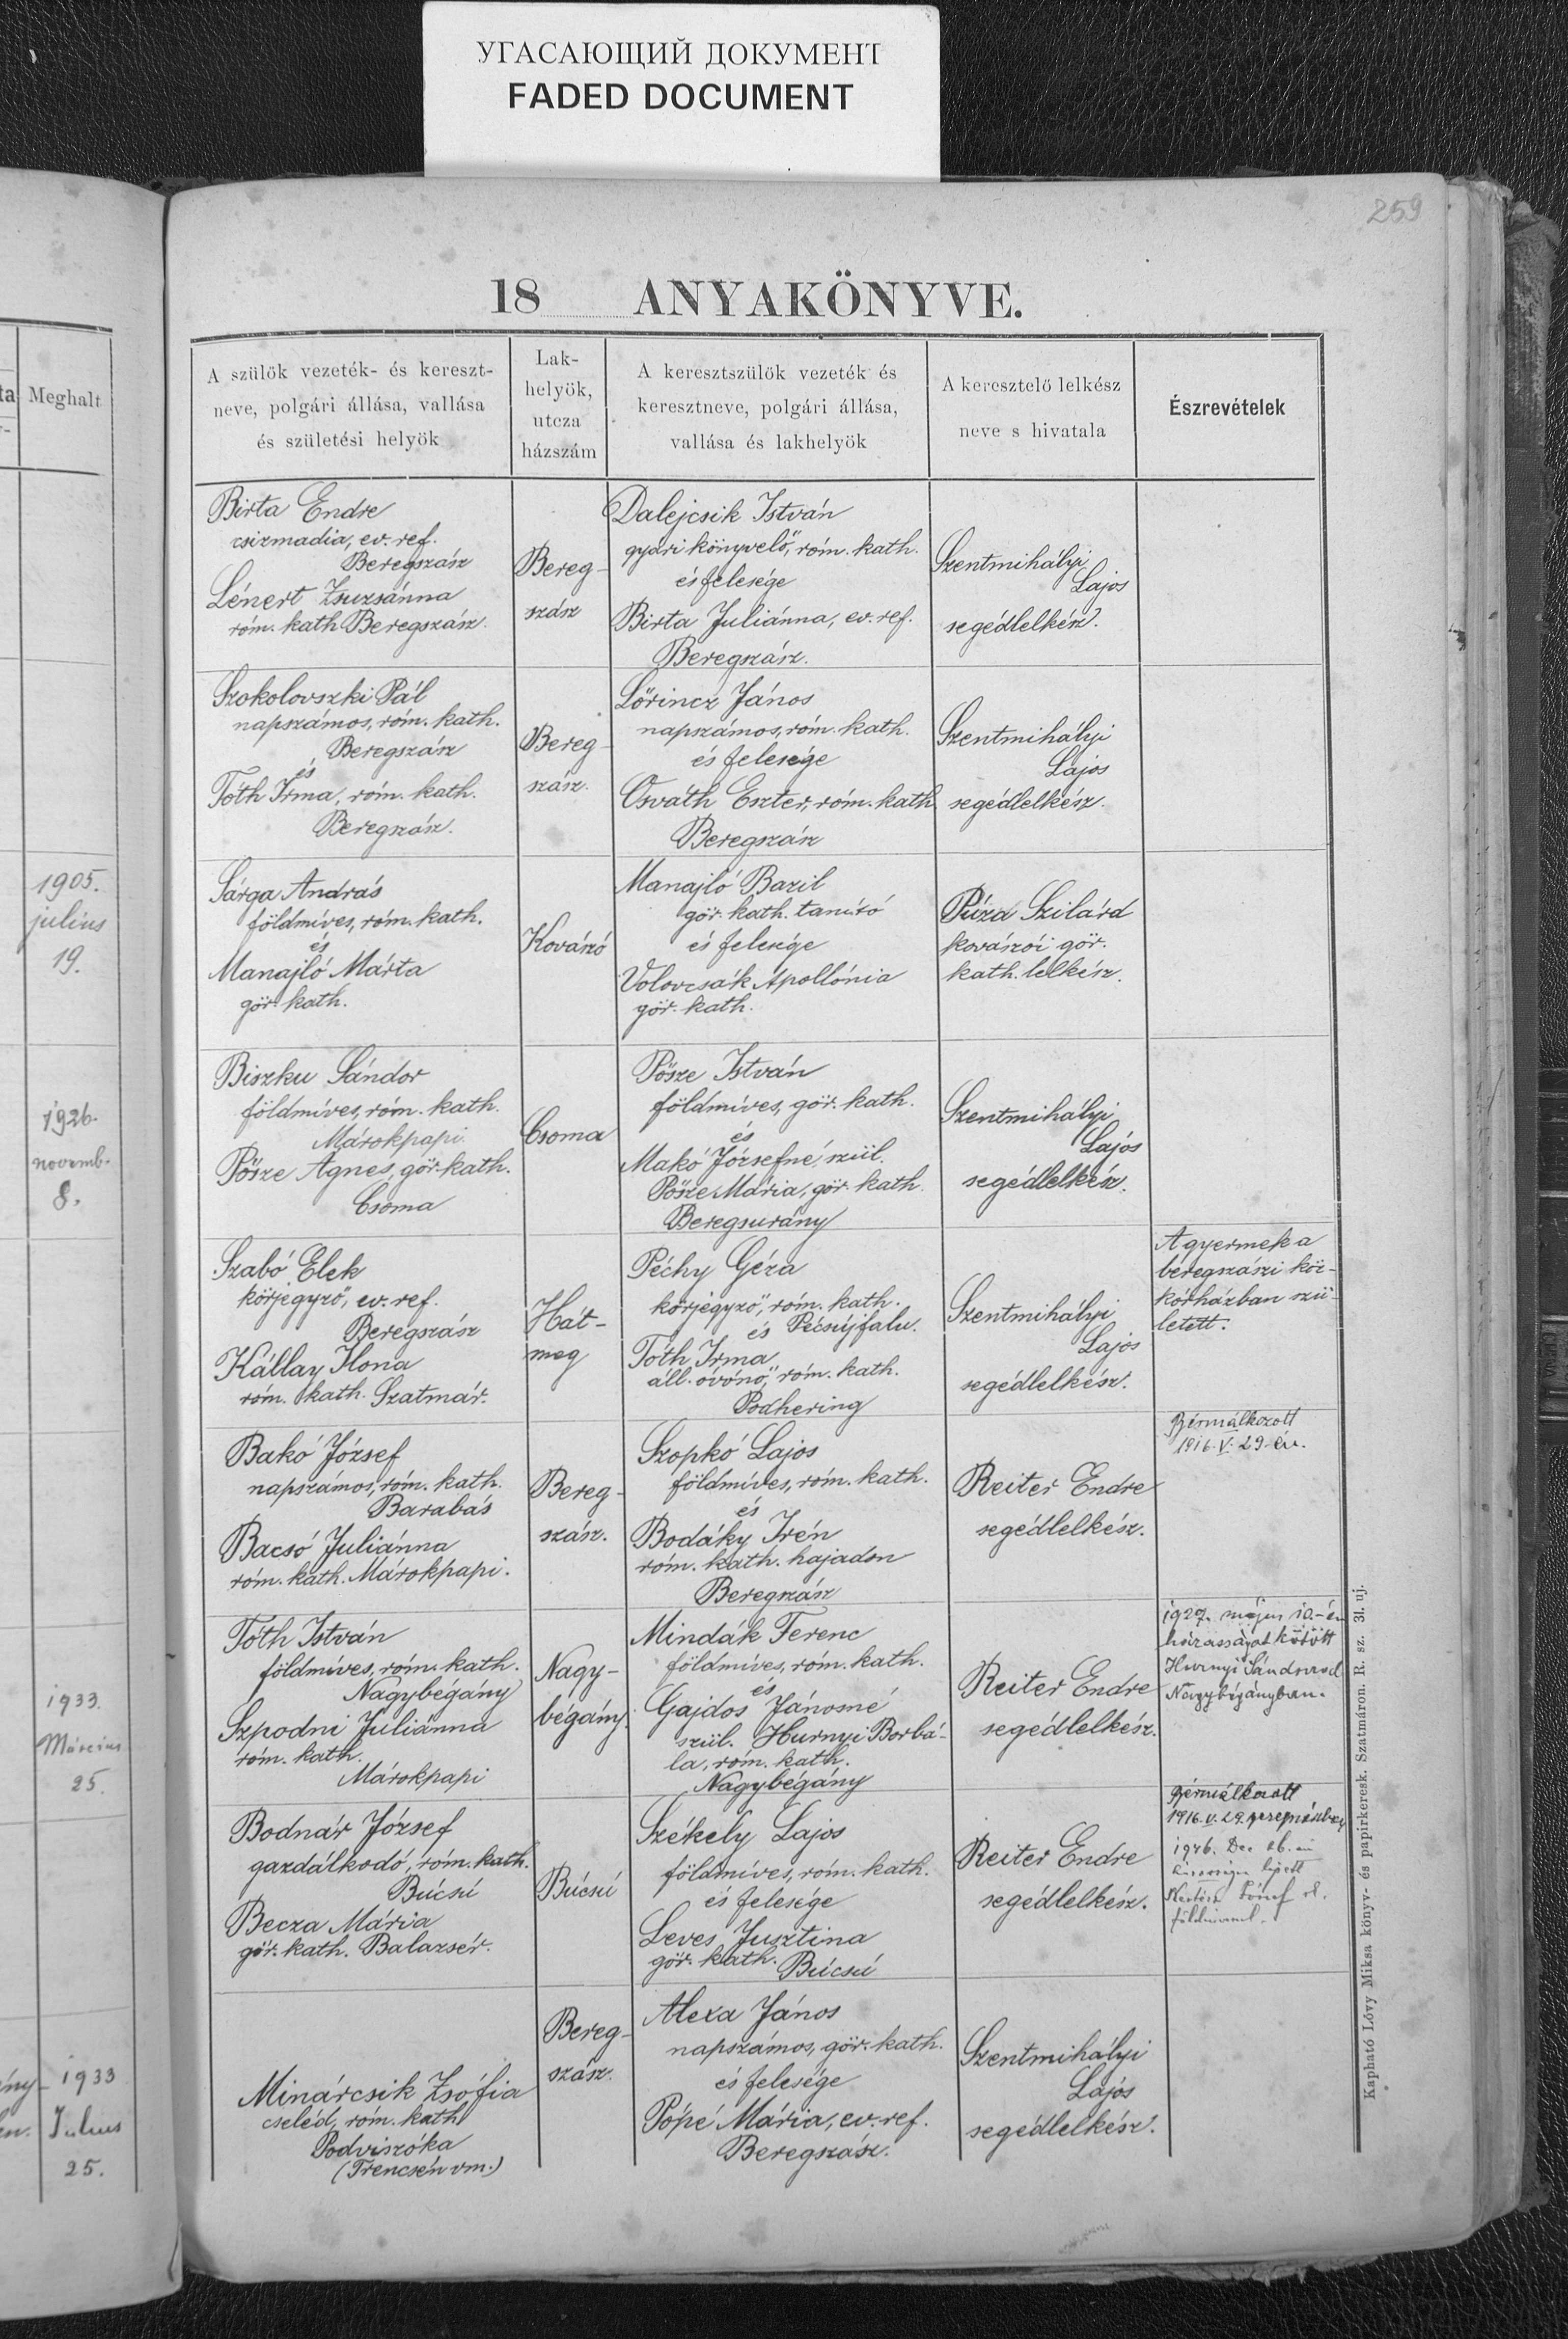 УГАСАЮЩИЙ ДОКУМЕНТ
FADED DOCUMENT
259
18 ANYAKÖNYVE.
ta
Meghalt
A szülök vezeték- és kereszt-
neve, polgári állása, vallása
és születési helyök
Lak-
helyök,
utcza
házszám
A keresztszülök vezeték és
keresztneve, polgári állása,
vallása és lakhelyök
A keresztelő lelkész
neve s hivatala
Észrevételek
Birta Endre
csizmadia, ev. ref.
Beregszász
Lénert Zsuzsánna
róm. kath. Beregszász.
Bereg-
szász
Dalejcsik István
gyári könyvelő, róm. kath.
és felesége
Birta Juliánna, ev. ref.
Beregszász.
Szentmihályi
Lajos
segédlelkész.
Szokolovszki Pál
napszámos, róm. kath.
Beregszász
és
Tóth Irma, róm. kath.
Beregszász.
Bereg-
szász.
Lőrincz János
napszámos, róm. kath.
és felesége
Osváth Eszter, róm. kath.
Beregszász
Szentmihályi
Lajos
segédlelkész.
1905.
július
19.
Sárga András
földmíves, róm. kath.
és
Manajló Márta
gör. kath.
Kovászó
Manajló Bazil
gör. kath. tanító
és felesége
Volovcsák Apollónia
gör. kath.
Púza Szilárd
kovászói gör.
kath. lelkész.
1926.
novemb.
8.
Biszku Sándor
földmíves, róm. kath.
Márokpapi
Pősze Ágnes, gör. kath.
Csoma
Csoma
Pősze István
földmíves, gör. kath.
és
Makó Józsefné, szül.
Pősze Mária, gör. kath.
Beregsurány
Szentmihályi
Lajos
segédlelkész.
Szabó Elek
körjegyző, ev. ref.
Beregszász
Kállay Ilona
róm. kath. Szatmár.
Hát-
meg
Péchy Géza
körjegyző, róm. kath.
és Pécsújfalu.
Tóth Irma
áll. óvónő, róm. kath.
Podhering
Szentmihályi
Lajos
segédlelkész.
A gyermek a
beregszászi köz-
kórházban szü-
letett.
Bakó József
napszámos, róm. kath.
Barabás
Bacsó Juliánna
róm. kath. Márokpapi.
Bereg-
szász.
Szopkó Lajos
földmíves, róm. kath.
és
Bodáky Irén
róm. kath. hajadon
Beregszász
Reiter Endre
segédlelkész.
Bérmálkozott
1916. V. 29-én.
1933.
Március
25.
Tóth István
földmíves, róm. kath.
Nagybégány
Szpodni Juliánna
róm. kath.
Márokpapi
Nagy-
bégány.
Mindák Ferenc
földmíves, róm. kath.
és
Gajdos Jánosné
szül. Hurnyi Borbá-
la, róm. kath.
Nagybégány
Reiter Endre
segédlelkész.
1927. május 10.-én
házasságot kötött
Hurnyi Sándorral
Nagybégányban.
Bodnár József
gazdálkodó, róm. kath.
Búcsú
Becza Mária
gör. kath. Balazsér.
Búcsú
Székely Lajos
földmíves, róm. kath.
és felesége
Leves Jusztina
gör. kath. Búcsú
Reiter Endre
segédlelkész.
Bérmálkozott
1916. V. 29.
1946. Dec 26.-án
lépett
József
1933
Julius
25.
Minárcsik Zsófia
cseléd, róm. kath.
Podviszóka
(Trencsén vm.)
Bereg-
szász.
Alexa János
napszámos, gör. kath.
és felesége
Pópé Mária, ev. ref.
Beregszász.
Szentmihályi
Lajos
segédlelkész.
Kapható Lövy Miksa könyv- és papirkeresk. Szatmáron. R. sz. 31. uj.